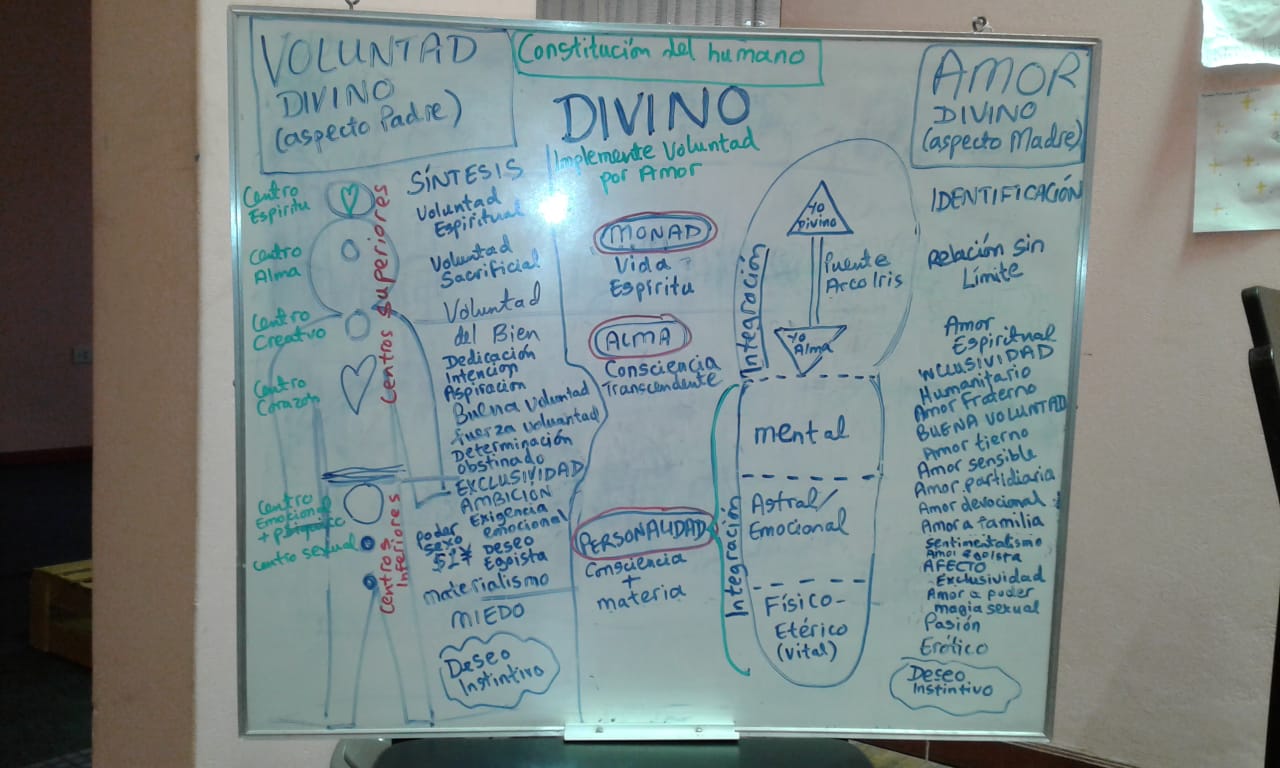 VOLUNTAD
DIVINO
(aspecto Padre)
Constitución del humano
DIVINO
Implemente Voluntad
por Amor
AMOR
DIVINO
(aspecto Madre)
Centro
Espíritu
Centro
Alma
Centro
Creativo
Centro
Corazón
Centro
Emocional
Centro sexual
Centros Superiores
Centros
Inferiores
SÍNTESIS
Voluntad
Espiritual
Voluntad
Sacrificial
Voluntad
del Bien
Dedicación
Intención
Aspiración
Buena Voluntad
fuerza voluantad
Determinación
obstinado
EXCLUSIVIDAD
AMBICIÓN
Exigencia
emocional
poder
sexo
DESEO
Egoista
materialismo
MIEDO
Deseo
Instintivo
MONAD
Vida
Espíritu
ALMA
Consciencia
Transcendente
PERSONALIDAD
Consciencia
+
materia
Integración
Yo
Divino
Puente
Arco Iris
Yo
Alma
Integración
mental
Astral/
Emocional
Físico-
Etérico
(Vital)
IDENTIFICACIÓN
Relación sin
Límite
Amor
Espiritual
INCLUSIVIDAD
Humanitario
Amor Fraterno
BUENA VOLUNTAD
Amor tierno
Amor sensible
Amor partidiaria
Amor devocional
Amor a familia
sentimentalismo
Amor egoista
AFECTO
Exclusividad
Amor a poder
magia sexual
Pasión
Erótico
Deseo
Instintivo